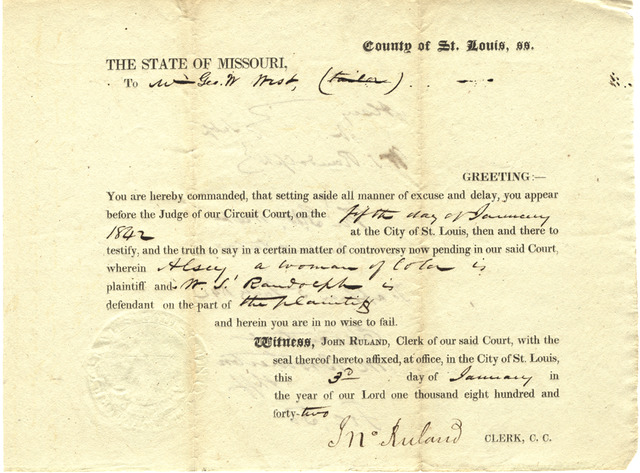 County of St. Louis, ss.
THE STATE OF MISSOURI,
To Mr Geo. W West, (tailor)
GREETING:—
You are hereby commanded, that setting aside all manner of excuse and delay, you appear
before the Judge of our Circuit Court, on the fifth day of January
1842 at the City of St. Louis, then and there to
testify, and the truth to say in a certain matter of controversy now pending in our said Court,
wherein Alsey a woman of Color is
plaintiff and W. S. Randolph is
defendant on the part of the plaintiff
and herein you are in no wise to fail.
Witness, JOHN RULAND, Clerk of our said Court, with the
seal thereof hereto affixed, at office, in the City of St. Louis,
this 3d day of January in
the year of our Lord one thousand eight hundred and
forty-two
Jno Ruland CLERK, C. C.